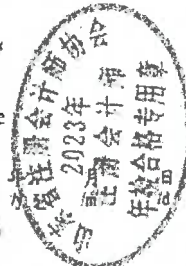 省注册会计师协会
2023年
注册会计师
年检合格专用章